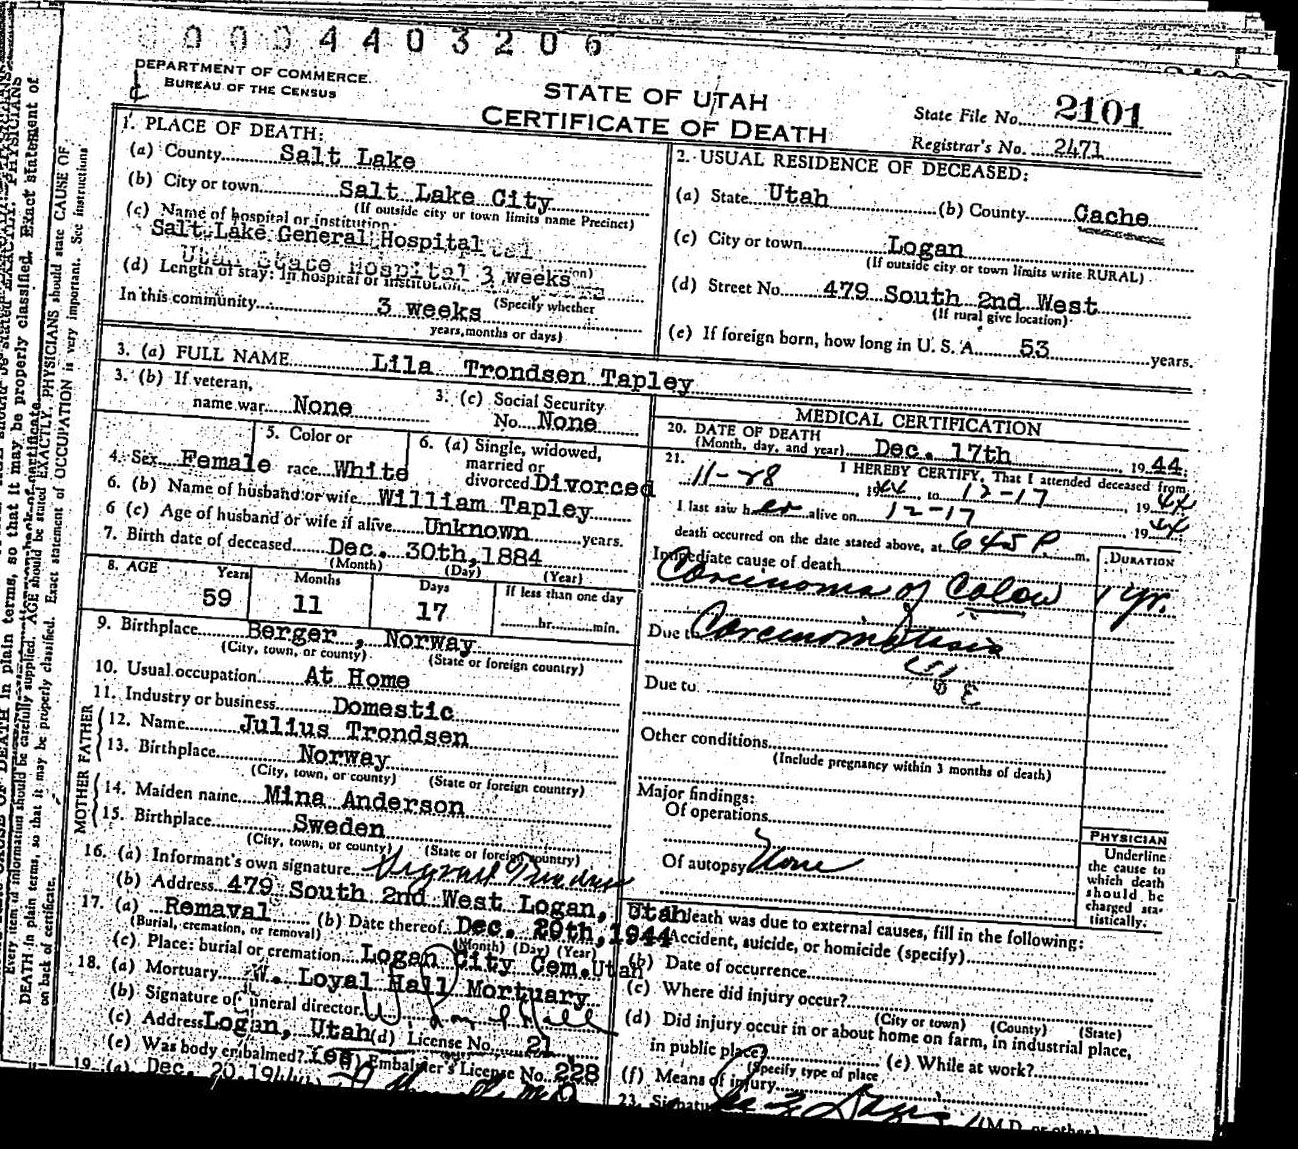 0 0 0 4 4 0 3 2 0 6
DEPARTMENT OF COMMERCE
BUREAU OF THE CENSUS
STATE OF UTAH
CERTIFICATE OF DEATH
State File No. 2101
Registrar's No. 2471
1. PLACE OF DEATH:
(a) County Salt Lake
(b) City or town Salt Lake City
(If outside city or town limits name Precinct)
(c) Name of hospital or institution
Salt Lake General Hospital
Utah State Hospital
(d) Length of stay: In hospital or institution 3 weeks
(Specify whether
In this community 3 weeks
years, months or days)
2. USUAL RESIDENCE OF DECEASED:
(a) State Utah (b) County Cache
(c) City or town Logan
(If outside city or town limits write RURAL)
(d) Street No. 479 South 2nd West
(If rural give location)
(e) If foreign born, how long in U. S. A. 53 years.
3. (a) FULL NAME Lila Trondsen Tapley
3. (b) If veteran,
name war None
3. (c) Social Security
No. None
4. Sex Female
5. Color or
race White
6. (a) Single, widowed,
married or
divorced Divorced
6. (b) Name of husband or wife William Tapley
6 (c) Age of husband or wife if alive Unknown years.
7. Birth date of deceased Dec. 30th, 1884
(Month) (Day) (Year)
8. AGE Years Months Days If less than one day
59 11 17 hr. min.
9. Birthplace Berger, Norway
(City, town, or county) (State or foreign country)
10. Usual occupation At Home
11. Industry or business Domestic
FATHER
12. Name Julius Trondsen
13. Birthplace Norway
(City, town, or county) (State or foreign country)
MOTHER
14. Maiden name Mina Anderson
15. Birthplace Sweden
(City, town, or county) (State or foreign country)
16. (a) Informant's own signature
(b) Address 479 South 2nd West Logan, Utah
17. (a) Remaval (b) Date thereof Dec. 20th, 1944
(Burial, cremation, or removal) (Month) (Day) (Year)
(c) Place: burial or cremation Logan City Cem. Utah
18. (a) Mortuary W. Loyal Hall Mortuary
(b) Signature of funeral director W Loyal Hall
(c) Address Logan, Utah (d) License No. 21
(e) Was body embalmed? Yes Embalmer's License No. 228
19. (a) Dec. 20, 1944
MEDICAL CERTIFICATION
20. DATE OF DEATH
(Month, day, and year) Dec. 17th 1944
21. I HEREBY CERTIFY, That I attended deceased from
11-28, 1944 to 12-17, 1944
I last saw her alive on 12-17 1944
death occurred on the date stated above, at 645 P. m.
Immediate cause of death
DURATION
Carcinoma of Colon 1 yr.
Due to Carcinomatosis
Due to
Other conditions
(Include pregnancy within 3 months of death)
Major findings:
Of operations
Of autopsy None
PHYSICIAN
Underline
the cause to
which death
should be
charged sta-
tistically.
death was due to external causes, fill in the following:
Accident, suicide, or homicide (specify)
(b) Date of occurrence
(c) Where did injury occur?
(City or town) (County) (State)
(d) Did injury occur in or about home on farm, in industrial place,
in public place? (e) While at work?
(Specify type of place
(f) Means of injury
23. Signature (M.D. or other)